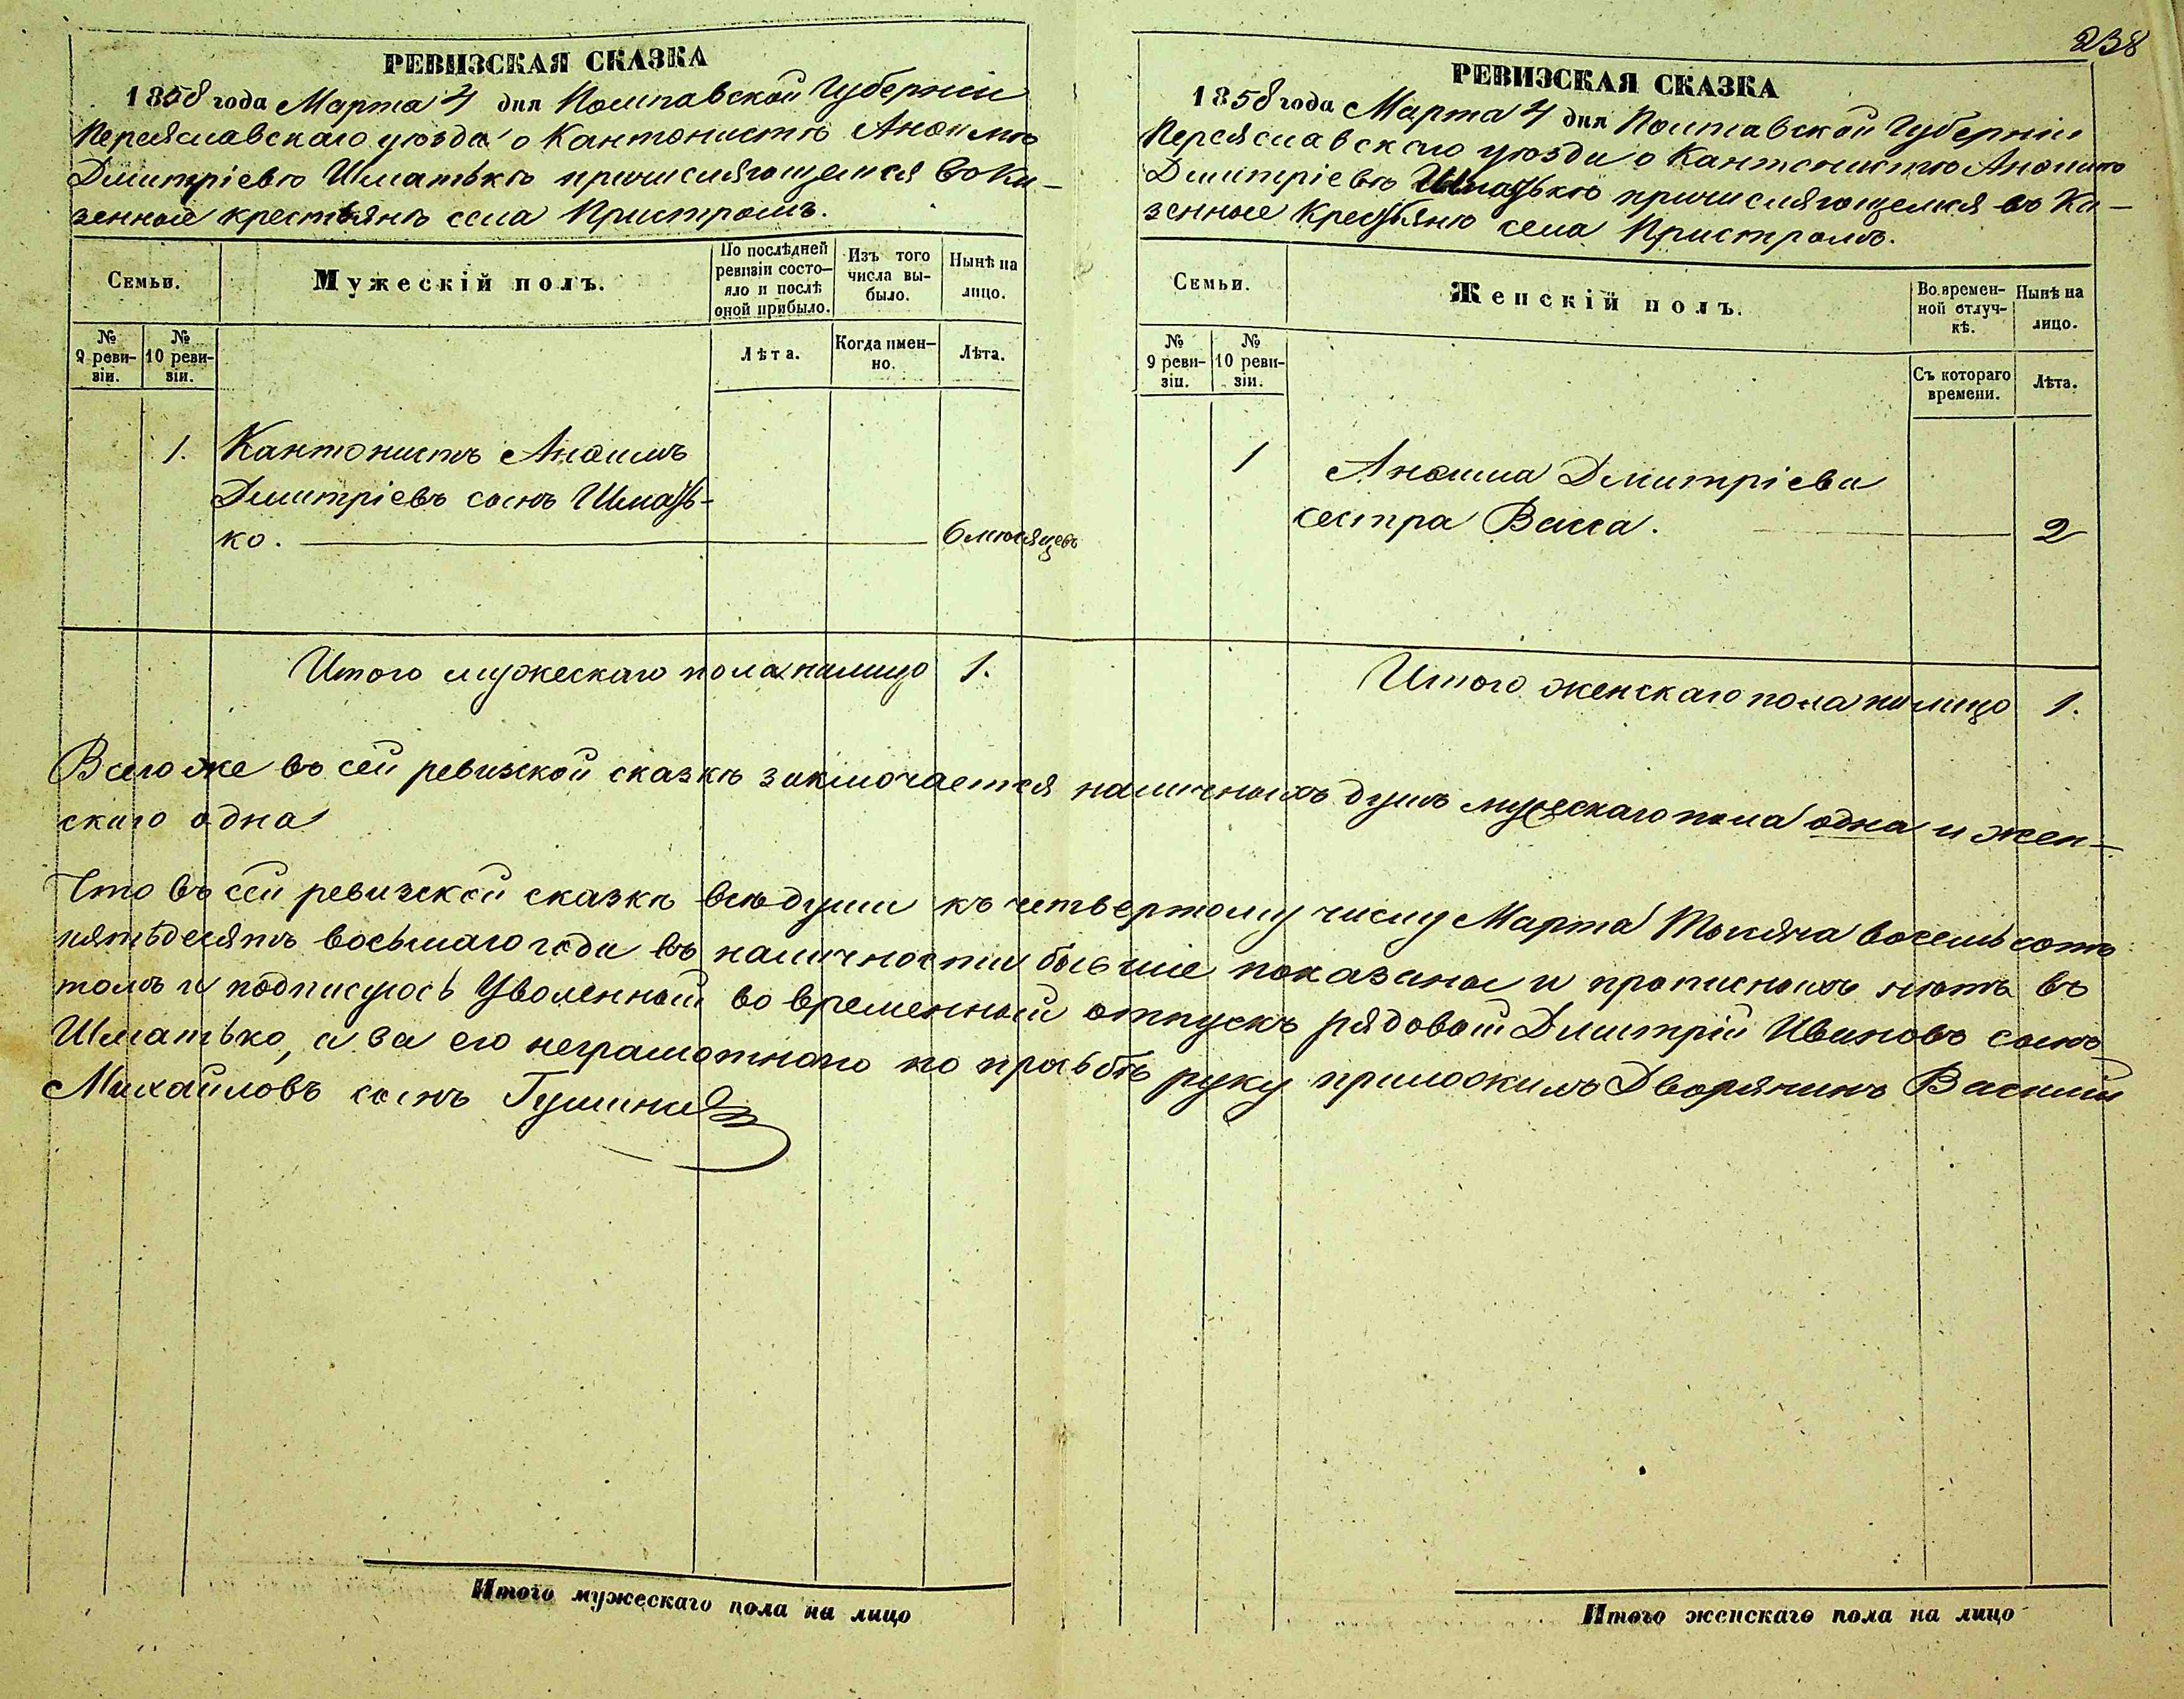 238
РЕВИЗСКАЯ СКАЗКА
1858 года Марта 4 дня Полтавской Губерніи
Переяславскаго уѣзда о Кантонистѣ Акимѣ
Дмитріевѣ Шматькѣ причисляющемся въ Ка-
зенные крестьянѣ села Пристромъ.
Семьи.
Мужескій полъ.
По послѣдней
ревизіи состо-
яло и послѣ
оной прибыло.
Изъ того
числа вы-
было.
Нынѣ на
лицо.
№
9 реви-
зіи.
№
10 реви-
зіи.
Лѣта.
Когда имен-
но.
Лѣта.
1. Кантонистъ
Дмитріевъ сынъ Шмать-
ко. 6 мѣсяцевъ
Итого мужескаго пола налицо 1.
РЕВИЗСКАЯ СКАЗКА
1858 года Марта 4 дня Полтавской Губерніи
Переяславскаго уѣзда о Кантонистѣ
Дмитріевѣ Шматькѣ причисляющемся въ Ка-
зенные Крестьянѣ села Пристромъ.
Семьи.
Женскій полъ.
Во времен-
ной отлуч-
кѣ.
Нынѣ на
лицо.
№
9 реви-
зіи.
№
10 реви-
зіи.
Съ котораго
времени.
Лѣта.
1 Дмитріева
сестра Васса. 2
Итого женскаго пола налицо 1.
Всего же въ сей ревизской сказкѣ заключается наличныхъ душъ мужескаго пола одна и жен-
скаго одна
Что въ сей ревизской сказкѣ всѣ души къ четвертому числу Марта Тысяча восемьсотъ
пятьдесятъ восьмаго года въ наличности бывшіе показаны и прописныхъ нѣтъ въ
томъ и подписуюсь Уволенный во временный отпускъ рядовой Дмитрій Ивановъ сынъ
Шматько, а за его неграмотнаго по прозьбѣ руку приложилъ Дворянинъ Василій
Михайловъ сынъ
Итого мужескаго пола на лицо
Итого женскаго пола на лицо